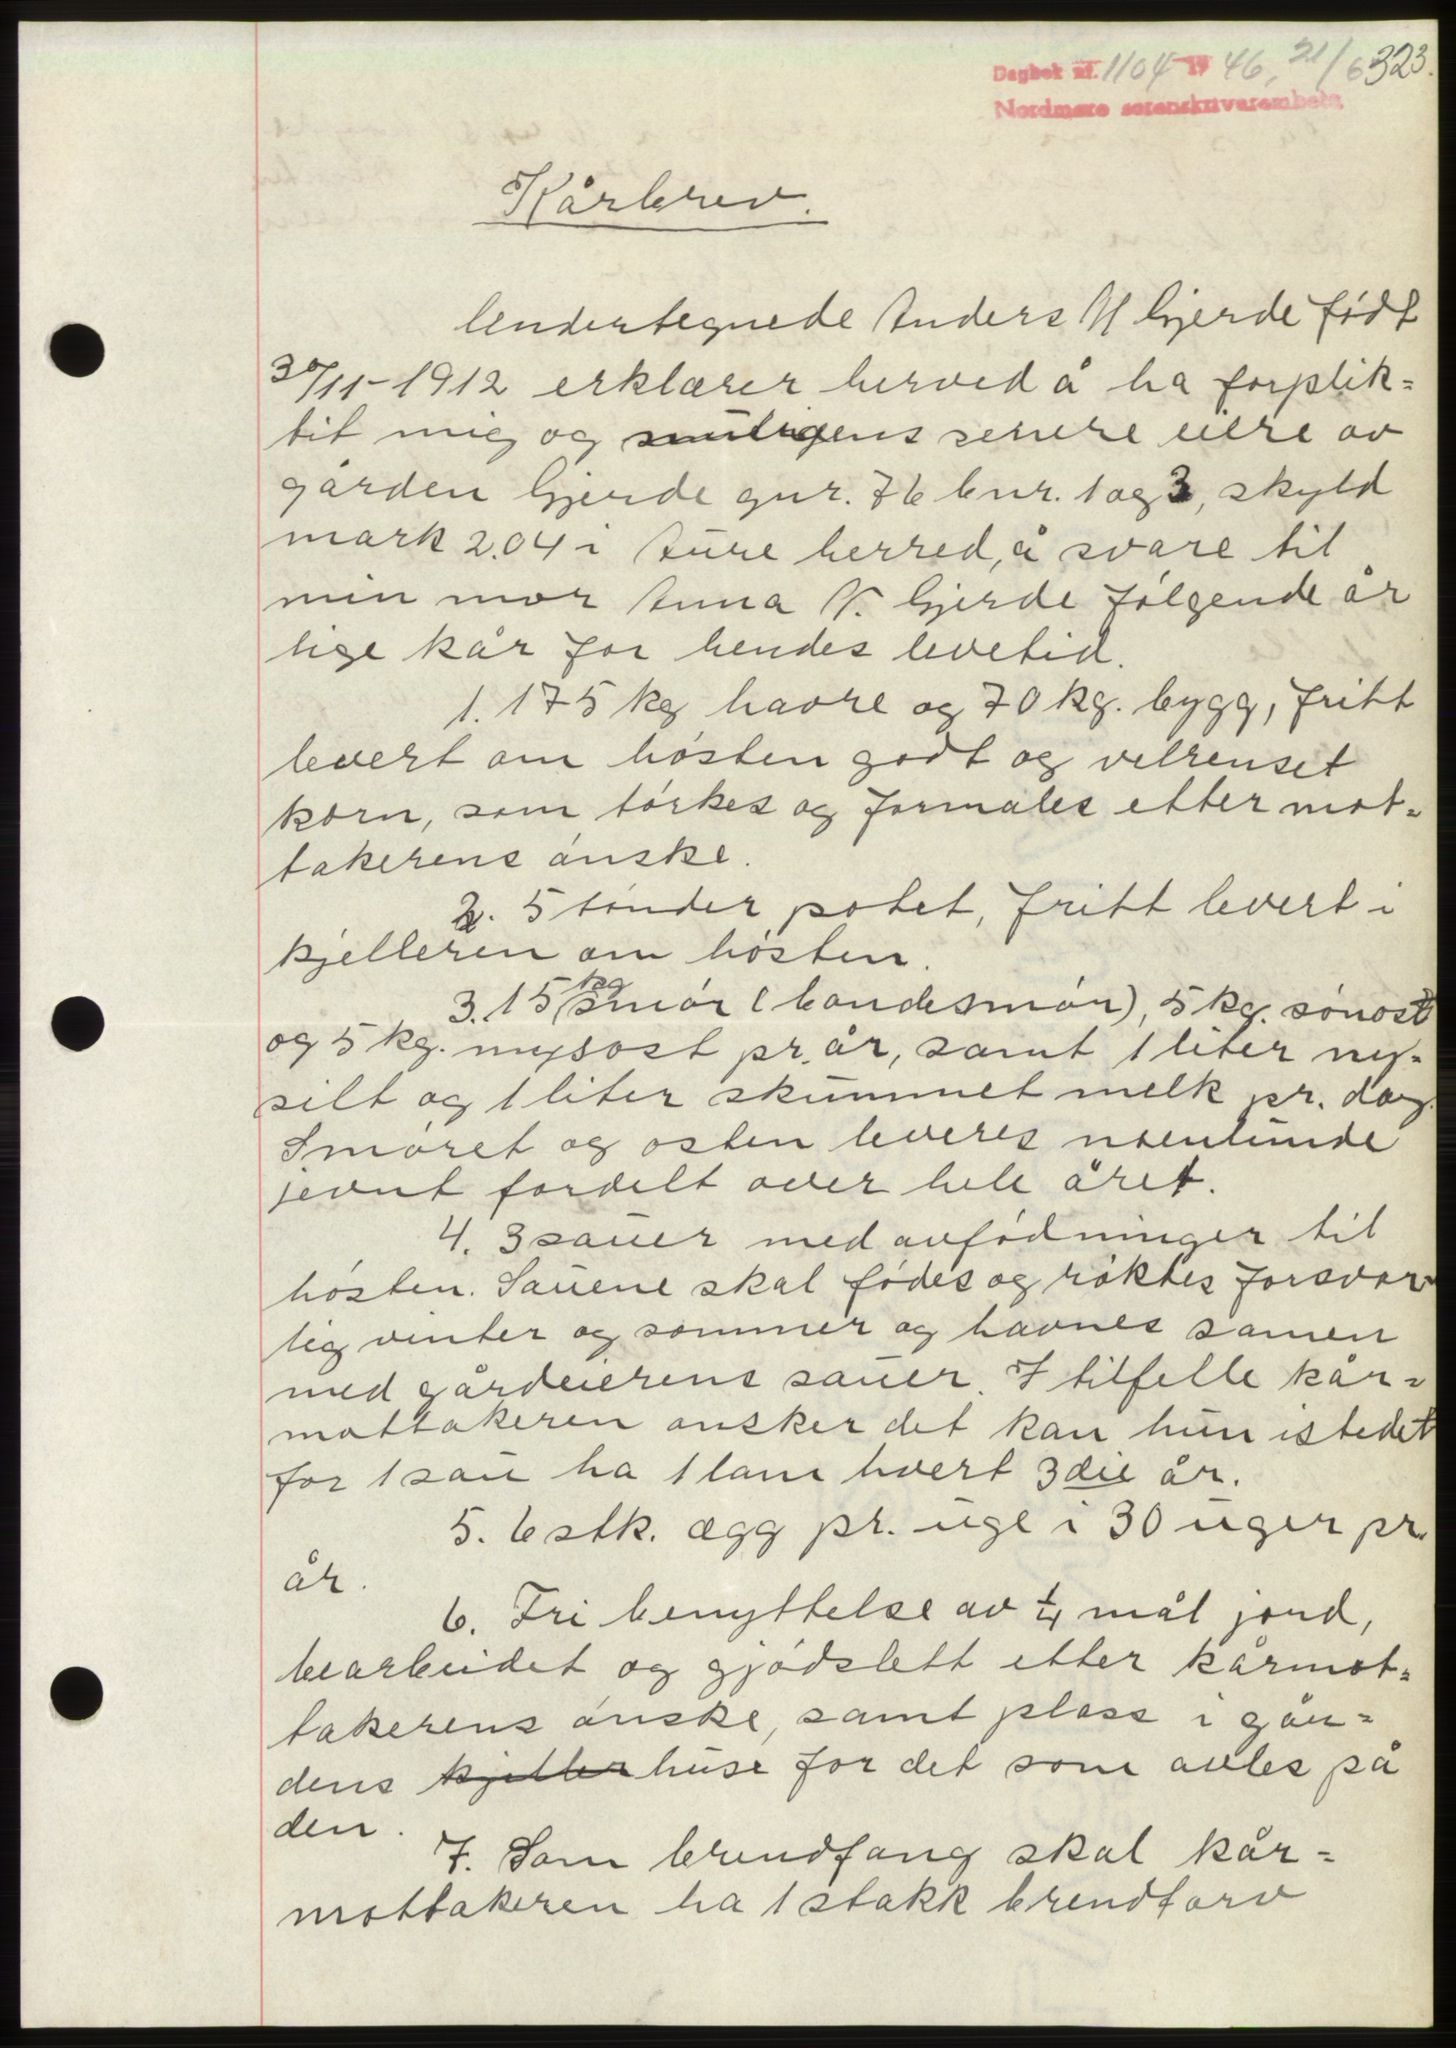 Dagbok nr. 1104 19 46, 21/6 323.
Nordmøre sorenskriverembete
Kårbrev.
Undertegnede Anders H Gjerde født
30/11-1912 erklærer herved å ha forplik=
tit mig og muligens senere eiere av
gården Gjerde gnr. 76 bnr. 1 og 3, skyld
mark 2.04 i Aure herred, å svare til
min mor Anna N. Gjerde følgende år
lige kår for hendes levetid.
1. 175 kg havre og 70 kg. bygg, fritt
levert om høsten godt og velrenset
korn, som tørkes og formales etter mot=
takerens ønske.
2. 5 tønder potet, fritt levert i
kjelleren om høsten.
3. 15 kg smør (bondesmør), 5 kg. sønost
og 5 kg. mysost pr. år, samt 1 liter ny=
silt og 1 liter skummet melk pr. dag.
Smøret og osten leveres noenlunde
jevnt fordelt over hele året.
4. 3 sauer med avfødninger til
høsten. Sauene skal fødes og røktes forsvar
lig vinter og sommer og havnes samen
med gårdeierens sauer. I tilfelle kår=
mottakeren ønsker det kan hun istedet
for 1 sau ha 1 lam hvert 3die år.
5. 6 stk. ægg pr. uge i 30 uger pr.
år.
6. Fri benyttelse av 1/4 mål jord,
bearbeidet og gjødslett etter kårmot=
takerens ønske, samt plass i går=
dens kjeller huse for det som avles på
den.
7. Som brendfang skal kår=
mottakeren ha 1 stakk brendtorv